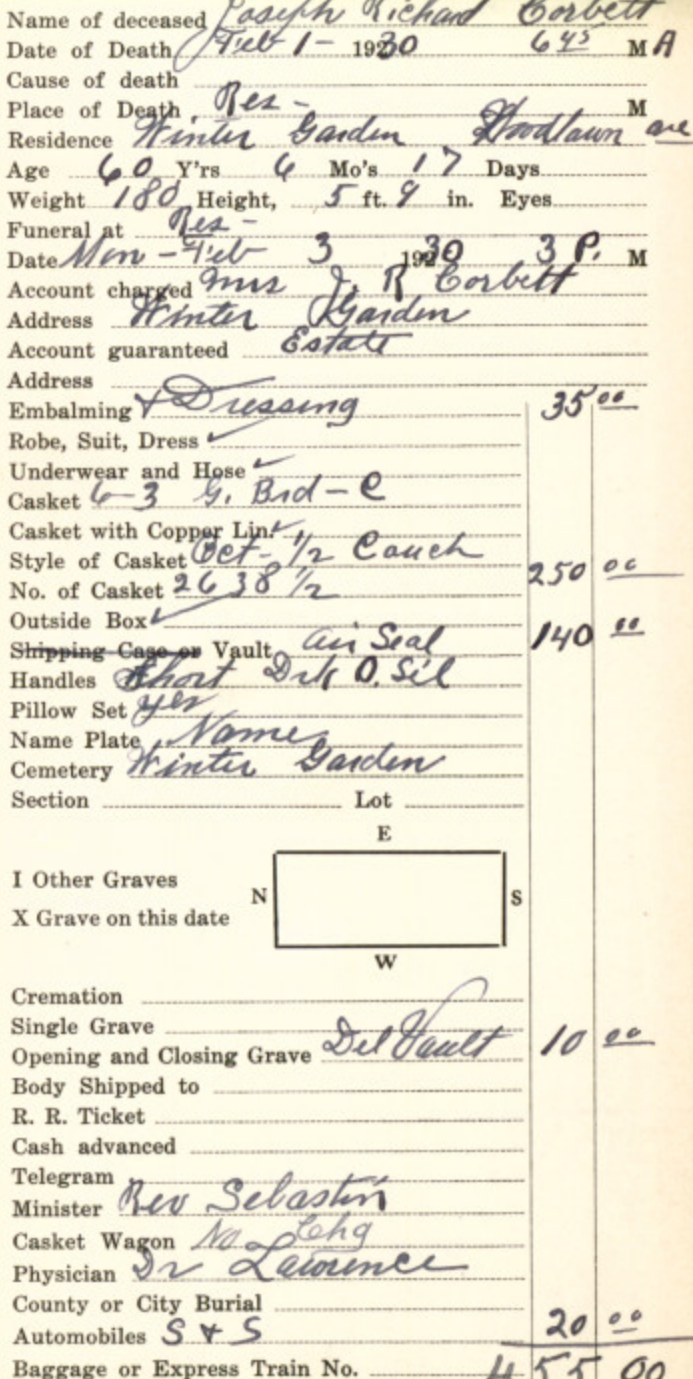 Name of deceased Joseph Richard Corbett
Date of Death Feb 1 - 1930 6 45 M A
Cause of death
Place of Death Res - M
Residence Winter Garden Woodlawn ave
Age 60 Y'rs 6 Mo's 17 Days
Weight 180 Height, 5 ft. 9 in. Eyes
Funeral at Res -
Date Mon - Feb 3 1930 3 P. M
Account charged Mrs J. R Corbett
Address Winter Garden
Account guaranteed Estate
Address
Embalming & Dressing 35 00
Robe, Suit, Dress ✓
Underwear and Hose ✓
Casket 6-3 G. Brd - C
Casket with Copper Lin. ✓
Style of Casket Oct - 1/2 Couch
No. of Casket 2638 1/2 250 00
Outside Box ✓
Shipping Case or Vault Air Seal 140 00
Handles Short Drk O. Sil
Pillow Set yes
Name Plate Name
Cemetery Winter Garden
Section Lot
E
I Other Graves
N S
X Grave on this date
W
Cremation
Single Grave
Opening and Closing Grave Del Vault 10 00
Body Shipped to
R. R. Ticket
Cash advanced
Telegram
Minister Rev Sebastin
Casket Wagon No Chg
Physician Dr Lawrence
County or City Burial
Automobiles S & S 20 00
Baggage or Express Train No. 455 00